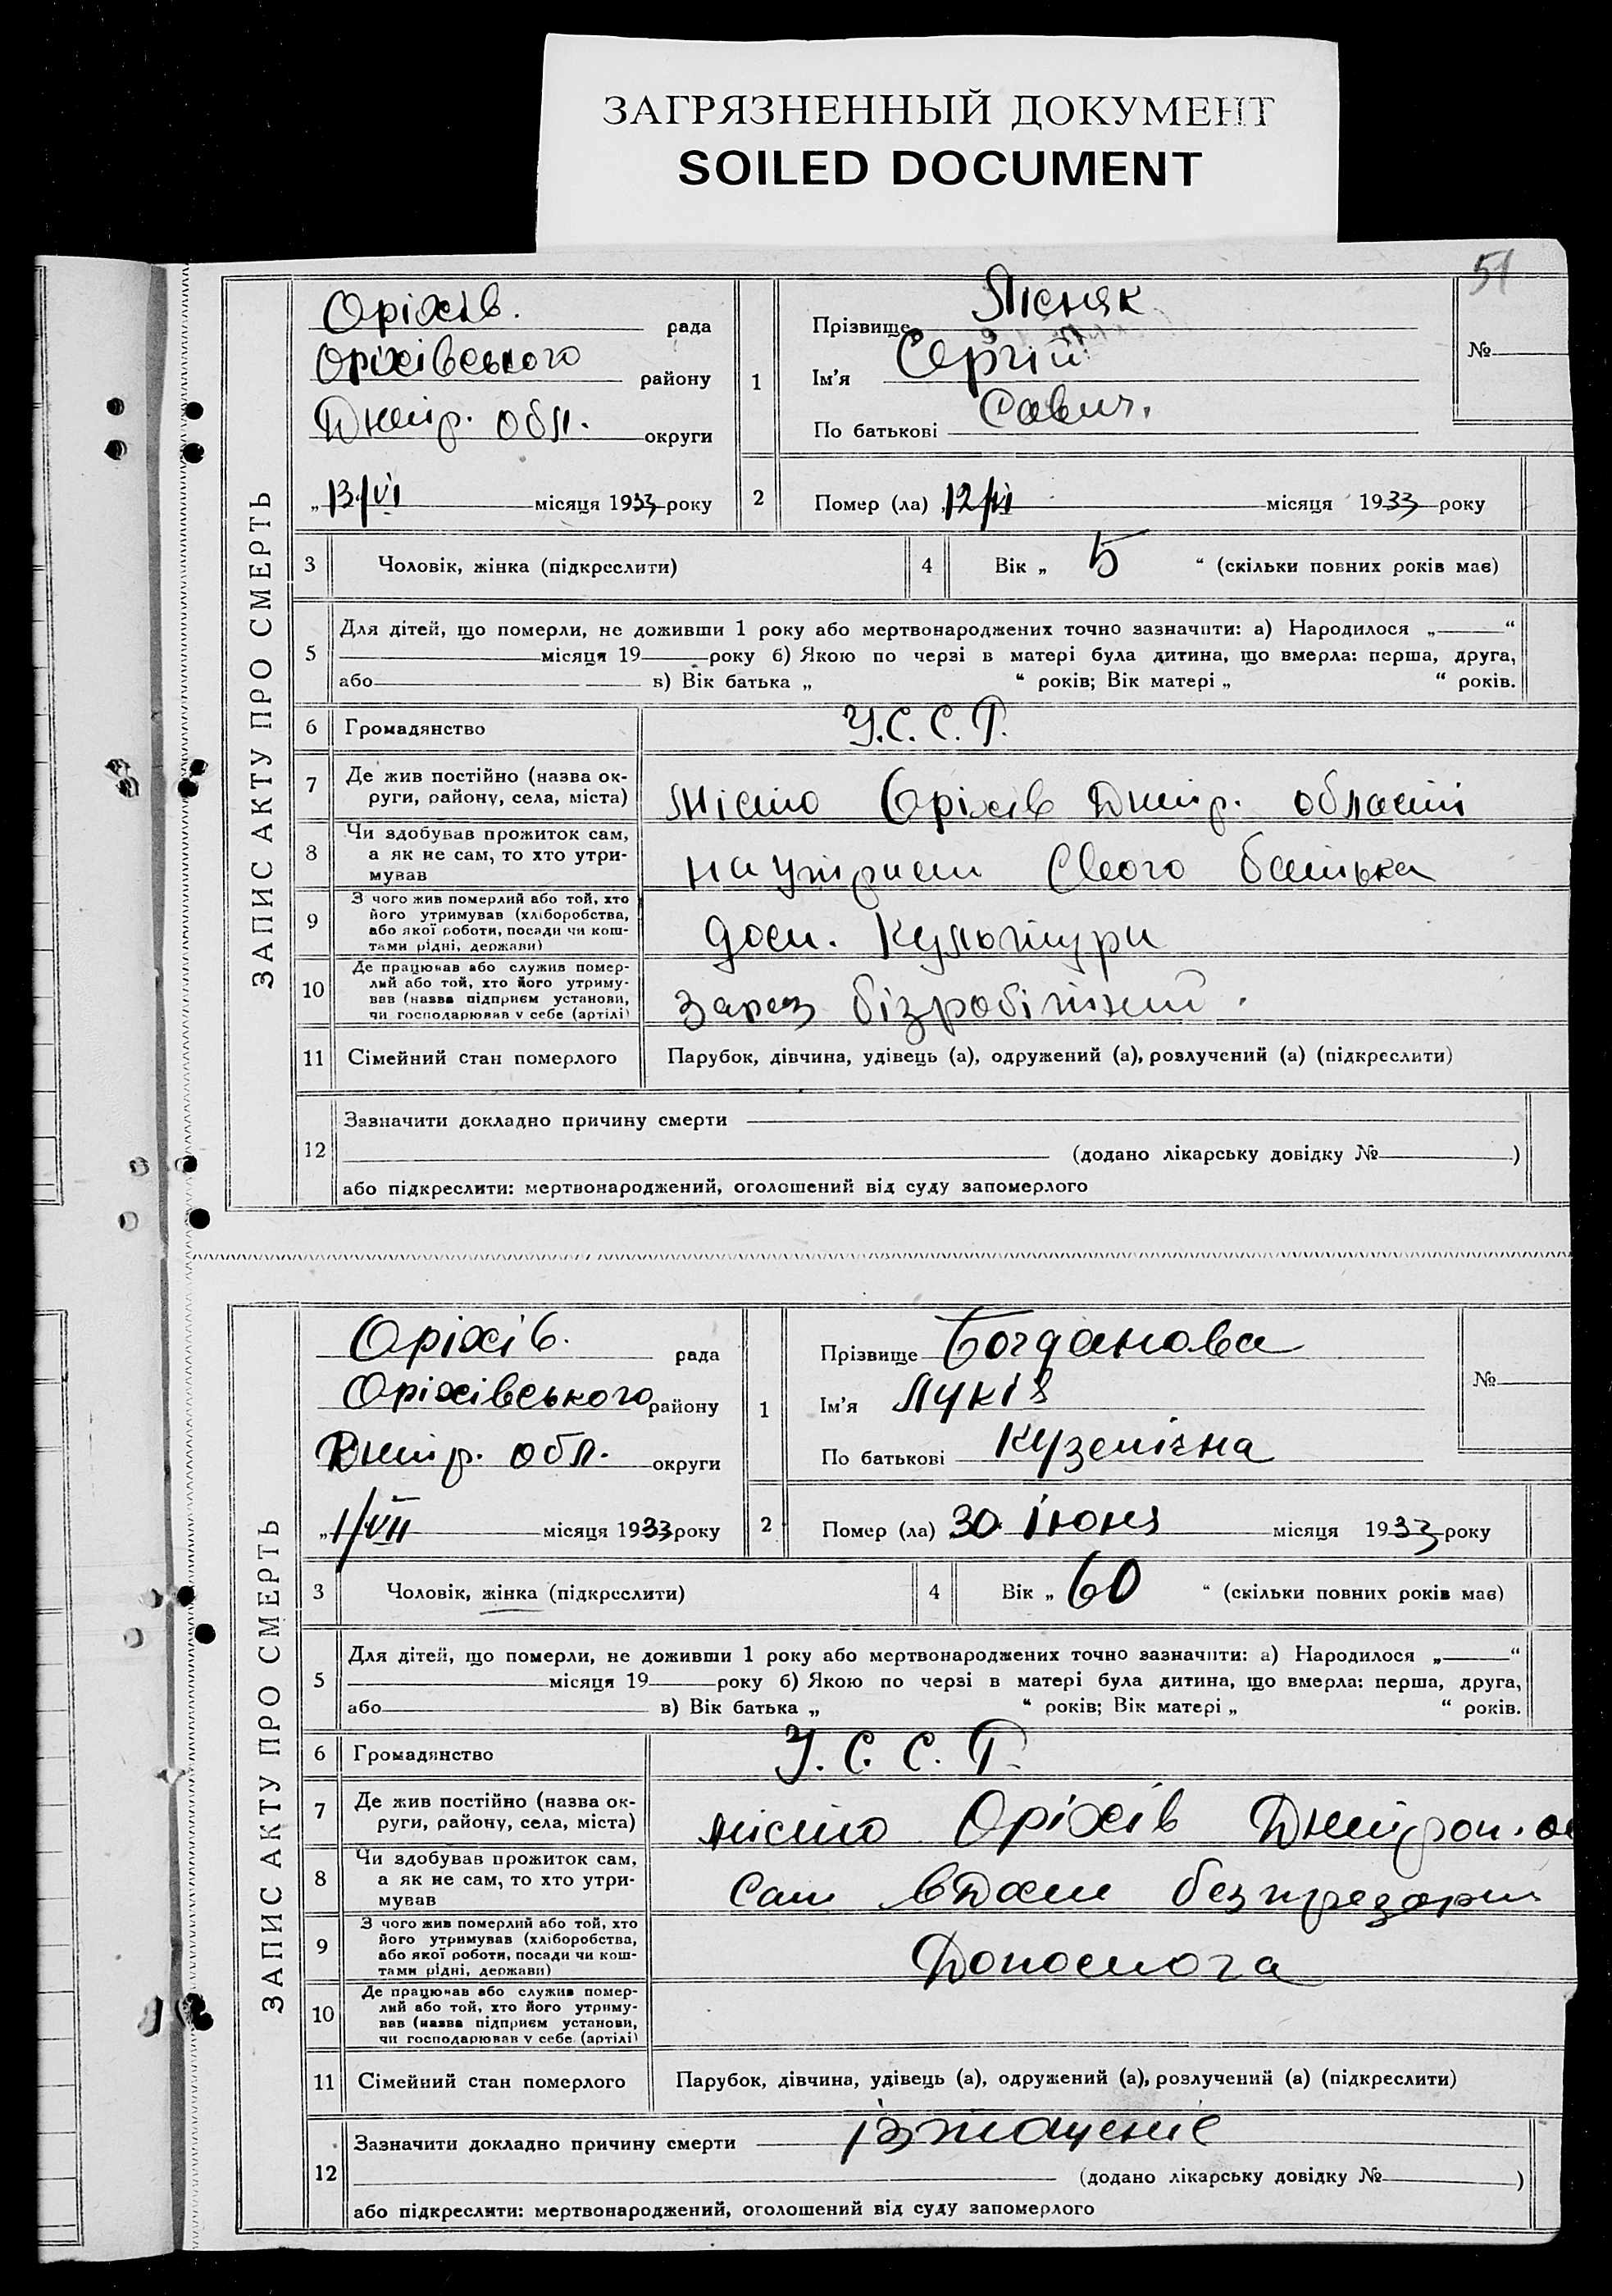 ЗАГРЯЗНЕННЫЙ ДОКУМЕНТ
SOILED DOCUMENT
51
ЗАПИС АКТУ ПРО СМЕРТЬ
Оріхів. рада
Оріхівського району
Дніпр. обл. округи
„13/VI місяця 1933 року
1
Прізвище Лісняк
Ім'я Сергій
По батькові Савич.
№
2 Помер (ла) „12/VI місяця 1933 року
3 Чоловік, жінка (підкреслити)
4 Вік „ 5 “ (скільки повних років має)
5 Для дітей, що померли, не доживши 1 року або мертвонароджених точно зазначити: а) Народилося „ “
місяця 19 року б) Якою по черзі в матері була дитина, що вмерла: перша, друга,
або в) Вік батька „ “ років; Вік матері „ “ років.
6 Громадянство У.С.С.Р.
7 Де жив постійно (назва ок-
руги, району, села, міста) місто Оріхів Дніпр. області
8 Чи здобував прожиток сам,
а як не сам, то хто утри-
мував на утриман Свого батька
9 З чого жив померлий або той, хто
його утримував (хліборобства,
або якої роботи, посади чи кош-
тами рідні, держави) Культури
10 Де працював або служив помер-
лий або той, хто його утриму-
вав (назва підприєм установи,
чи господарював у себе (артілі) Зараз бізробітний.
11 Сімейний стан померлого Парубок, дівчина, удівець (а), одружений (а), розлучений (а) (підкреслити)
12 Зазначити докладно причину смерти
(додано лікарську довідку № )
або підкреслити: мертвонароджений, оголошений від суду запомерлого
ЗАПИС АКТУ ПРО СМЕРТЬ
Оріхів. рада
Оріхівського району
Дніпр. обл. округи
„1/VII місяця 1933 року
1
Прізвище Богданова
Ім'я Лукія
По батькові Кузмінічна
№
2 Помер (ла) 30 іюня місяця 1933 року
3 Чоловік, жінка (підкреслити)
4 Вік „ 60 “ (скільки повних років має)
5 Для дітей, що померли, не доживши 1 року або мертвонароджених точно зазначити: а) Народилося „ “
місяця 19 року б) Якою по черзі в матері була дитина, що вмерла: перша, друга,
або в) Вік батька „ “ років; Вік матері „ “ років.
6 Громадянство У.С.С.Р.
7 Де жив постійно (назва ок-
руги, району, села, міста) місто Оріхів Дніпроп.
8 Чи здобував прожиток сам,
а як не сам, то хто утри-
мував Сам
9 З чого жив померлий або той, хто
його утримував (хліборобства,
або якої роботи, посади чи кош-
тами рідні, держави) Допомога
10 Де працював або служив помер-
лий або той, хто його утриму-
вав (назва підприєм установи,
чи господарював у себе (артілі)
11 Сімейний стан померлого Парубок, дівчина, удівець (а), одружений (а), розлучений (а) (підкреслити)
12 Зазначити докладно причину смерти
(додано лікарську довідку № )
або підкреслити: мертвонароджений, оголошений від суду запомерлого